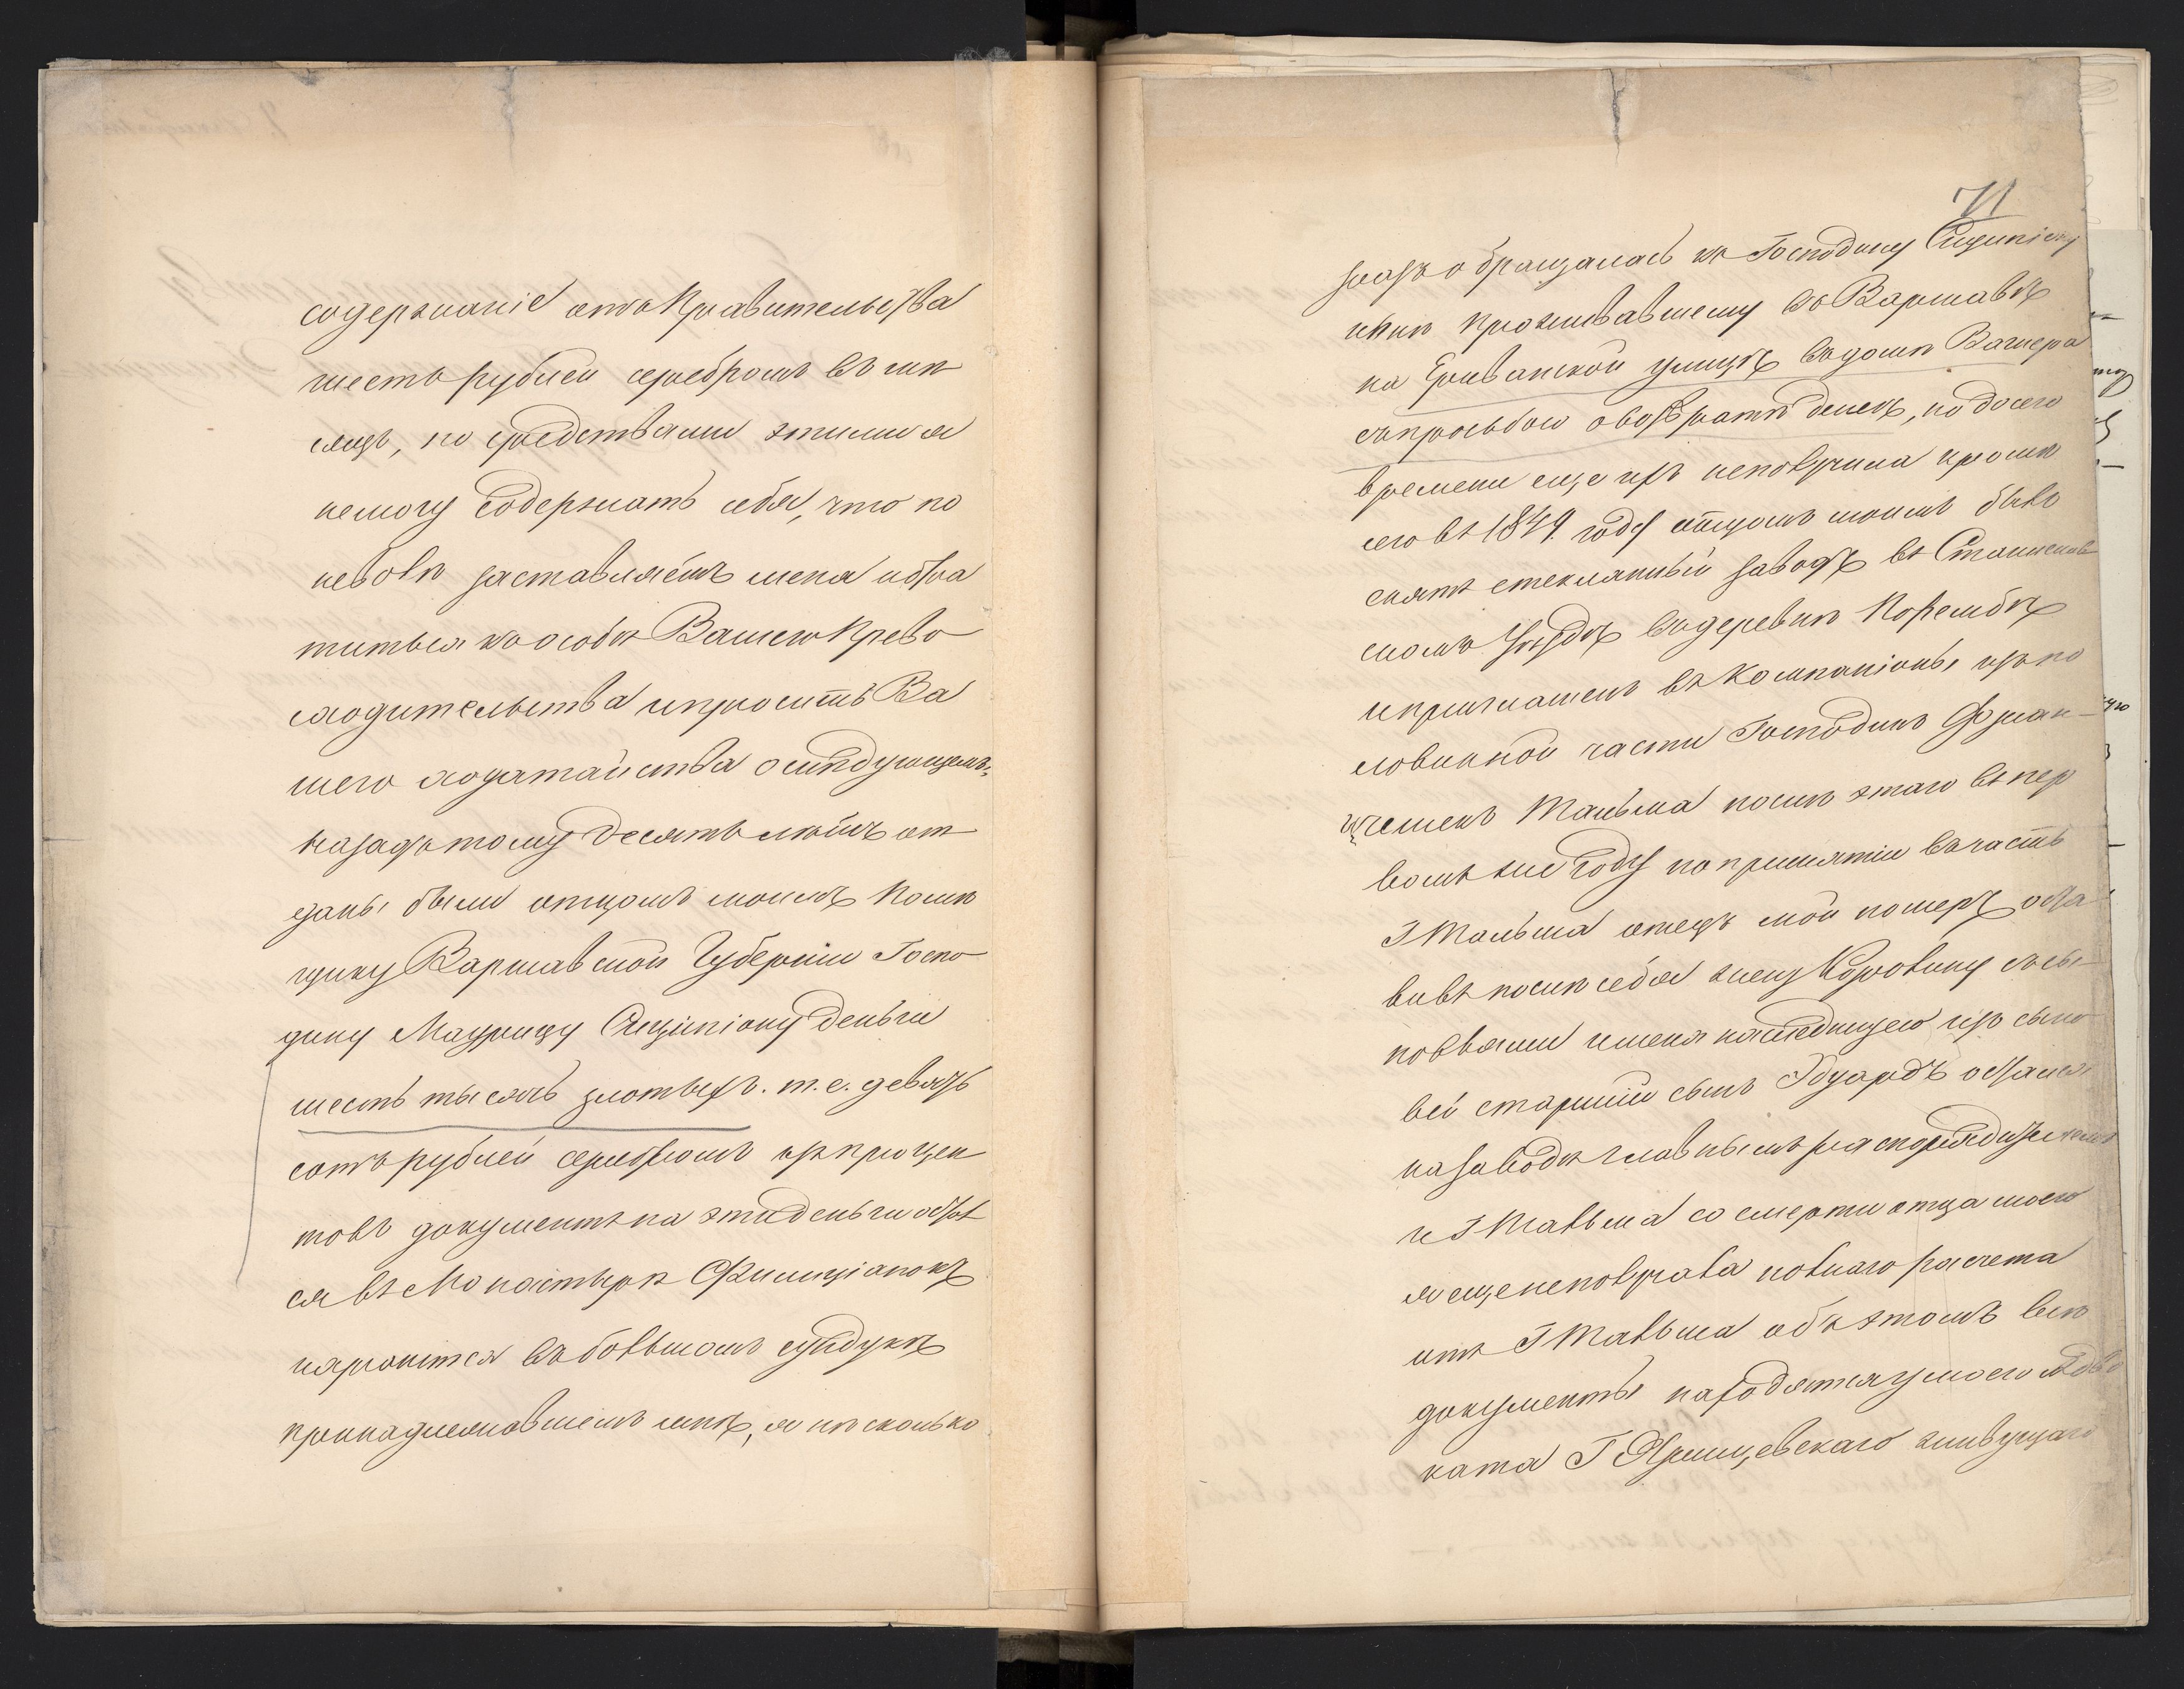 содержаніе отъ Правительства
шесть рублей серебромъ въ мѣ
сяцъ, но средствами этими я
немогу содержать себя, что по
неволѣ заставляетъ меня обра
титься къ особѣ Вашего Прево
сходительства и просить Ва
шего ходатайства о слѣдующемъ:
Назадъ тому десять лѣтъ от
даны были отцомъ моимъ Помѣ
щику Варшавской Губерніи Госпо
дину Маурицу Сципіону деньги
шесть тысячъ злотыхъ. т.е. девять
сотъ рублей серебромъ изъ процен
товъ документъ на эти деньги остал
ся въ Монастырѣ Фелиціанокъ
хранится въ большомъ сундукѣ
принадлежавшемъ мнѣ, я нѣсколько
71
разъ обращалась къ Господину Сципіону
нынѣ проживавшему въ Варшавѣ
на Эриванской улицѣ въ домѣ Вагнера
съ просьбою о возвратѣ денегъ, но до сего
времени еще ихъ неполучила кромѣ
сего въ 1849 году отцомъ моимъ былъ
снятъ стеклянный заводъ въ Станиславов
скомъ Уѣздѣ въ деревнѣ
и приглашенъ въ Компаніоны изъ по
ловинной части Господинъ Фран-
Тальма послѣ этаго въ пер
вомъ же году по принятіи въ часть
Г Тальма отецъ мой померъ оста
вивъ послѣ себя жену съ сы
новьями и меня наслѣдницею изъ сыно
вей старшій сынъ Эдуардъ остался
на заводѣ главнымъ распорядителемъ
и Г Тальма со смерти отца моего
я еще неполучала полнаго расчета
отъ Г Тальма объ этомъ всѣ
документы находятся у моего Адво
ката Г живущаго